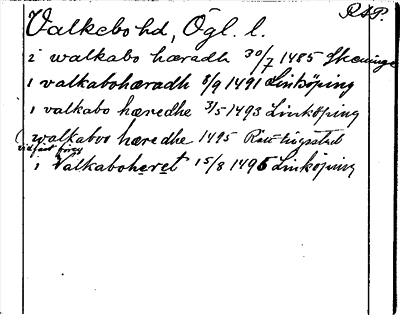 Valkebo hd, Ögl. l.
RAP.
i walkabo hæradh 30/7 1485 Skeninge
i valkabohæradh 8/9 1491 Linköping
i valkabo hæredhe 3/5 1493 Linköping
walkabo hæredhe 1495
i Valkaboheret 15/8 1495 Linköping